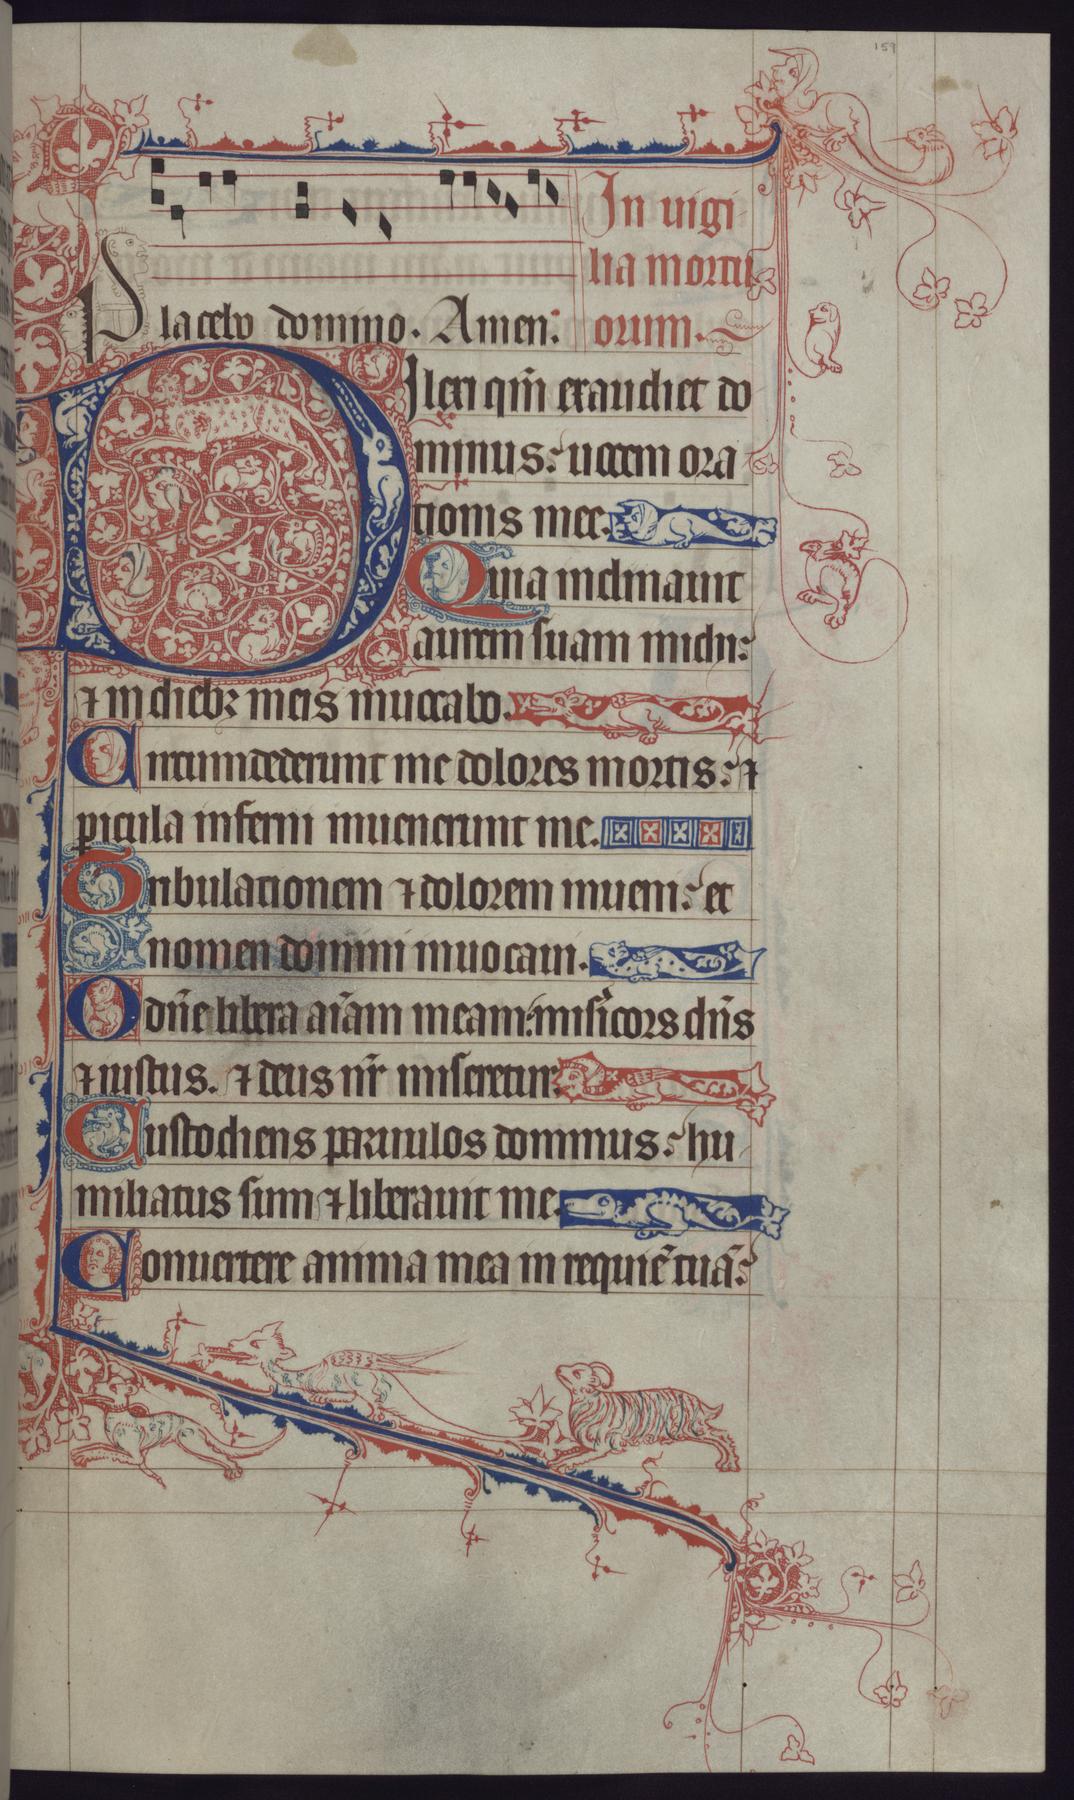 159
In uigi
lia mortu
Placebo domino. Amen. orum.
Dilexi qm̄ exaudiet do
minus: uocem ora
tionis mee.
Quia inclinauit
aurem suam michi:
⁊ in diebꝫ meis inuocabo.
Circumdederunt me dolores mortis: ⁊
ꝑicula inferni inuenerunt me.
Tribulationem ⁊ dolorem inueni: et
nomen domini inuocaui.
O dn̄e libera aīam meam: misicors dn̄s
⁊ iustus. ⁊ deus nr̄ miseretur.
Custodiens paruulos dominus: hu
miliatus sum ⁊ liberauit me.
Conuertere anima mea in requiē tuā: